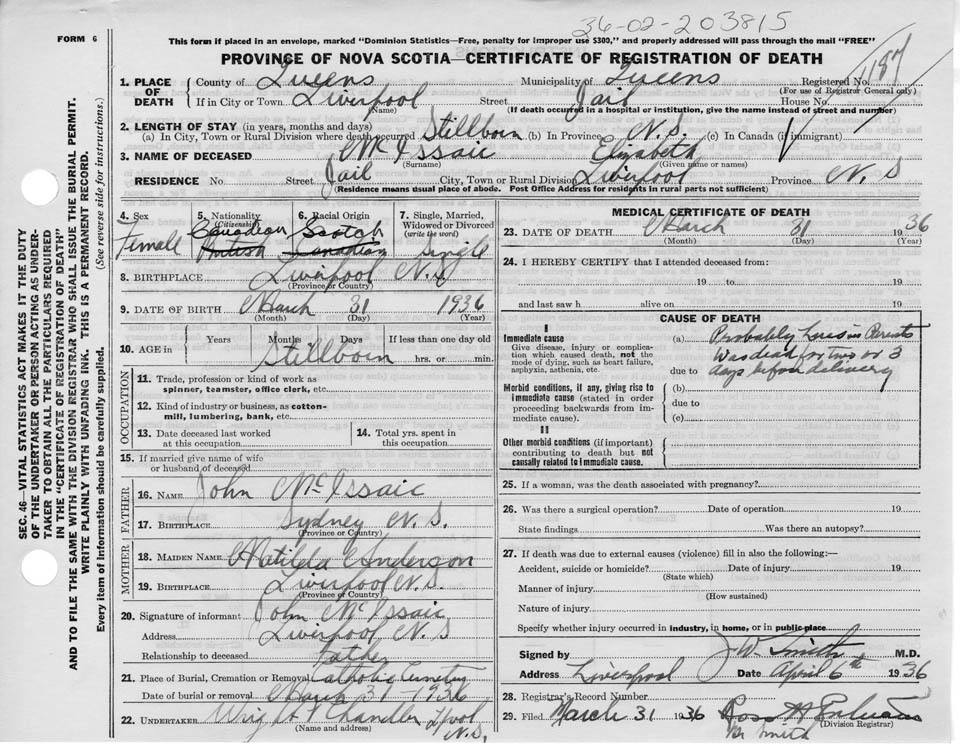 36-02-203815
FORM 6
This form if placed in an envelope, marked "Dominion Statistics—Free, penalty for improper use $300," and properly addressed will pass through the mail "FREE"
PROVINCE OF NOVA SCOTIA—CERTIFICATE OF REGISTRATION OF DEATH
187
1. PLACE OF DEATH County of Queens Municipality of Queens Registered No.
(For use of Registrar General only)
If in City or Town Liverpool Street Jail House No.
(Name) (If death occurred in a hospital or institution, give the name instead of street and number)
2. LENGTH OF STAY (in years, months and days)
(a) In City, Town or Rural Division where death occurred Stillborn (b) In Province N.S. (c) In Canada (if immigrant)
3. NAME OF DECEASED McIssaic Elizabeth
(Surname) (Given name or names)
RESIDENCE No. Street Jail City, Town or Rural Division Liverpool Province N.S
(Residence means usual place of abode. Post Office Address for residents in rural parts not sufficient)
SEC. 46—VITAL STATISTICS ACT MAKES IT THE DUTY
OF THE UNDERTAKER OR PERSON ACTING AS UNDER-
TAKER TO OBTAIN ALL THE PARTICULARS REQUIRED
IN THE "CERTIFICATE OF REGISTRATION OF DEATH"
AND TO FILE THE SAME WITH THE DIVISION REGISTRAR WHO SHALL ISSUE THE BURIAL PERMIT.
WRITE PLAINLY WITH UNFADING INK. THIS IS A PERMANENT RECORD.
Every item of Information should be carefully supplied. (See reverse side for instructions.)
4. Sex 5. Nationality (Citizenship) 6. Racial Origin 7. Single, Married, Widowed or Divorced (write the word)
Female Canadian Scotch Single
Canadian
8. BIRTHPLACE Liverpool N.S
(Province or Country)
9. DATE OF BIRTH March 31 1936
(Month) (Day) (Year)
10. AGE in Years Months Days If less than one day old
Stillborn hrs. or min.
OCCUPATION
11. Trade, profession or kind of work as
spinner, teamster, office clerk, etc.
12. Kind of industry or business, as cotton-
mill, lumbering, bank, etc.
13. Date deceased last worked
at this occupation
14. Total yrs. spent in
this occupation
15. If married give name of wife
or husband of deceased
FATHER
16. NAME John McIssaic
17. BIRTHPLACE Sydney N.S.
(Province or Country)
MOTHER
18. MAIDEN NAME Matilda Anderson
19. BIRTHPLACE Liverpool N.S.
(Province or Country)
20. Signature of informant John McIssaic
Address Liverpool N.S
Relationship to deceased Father
21. Place of Burial, Cremation or Removal Catholic Cemetry
Date of burial or removal March 31 - 1936
22. UNDERTAKER Wright & Chandler L'pool N.S.
(Name and address)
MEDICAL CERTIFICATE OF DEATH
23. DATE OF DEATH March 31 1936
(Month) (Day) (Year)
24. I HEREBY CERTIFY that I attended deceased from:
19 to 19
and last saw h alive on 19
CAUSE OF DEATH
I
Immediate cause
Give disease, injury or complication which caused death, not the mode of dying, such as heart failure, asphyxia, asthenia, etc.
(a) Probably Lues in Parents
Was dead for two or 3
due to days before delivery
Morbid conditions, if any, giving rise to immediate cause (stated in order proceeding backwards from immediate cause).
(b)
due to
(c)
II
Other morbid conditions (if important) contributing to death but not causally related to immediate cause.
25. If a woman, was the death associated with pregnancy?
26. Was there a surgical operation? Date of operation 19
State findings Was there an autopsy?
27. If death was due to external causes (violence) fill in also the following:—
Accident, suicide or homicide? Date of injury 19
(State which)
Manner of injury
(How sustained)
Nature of injury
Specify whether injury occurred in industry, in home, or in public place
Signed by J W Smith M.D.
Address Liverpool Date April 6th 1936
28. Registrar's Record Number
29. Filed March 31 1936
(Division Registrar)
Smith